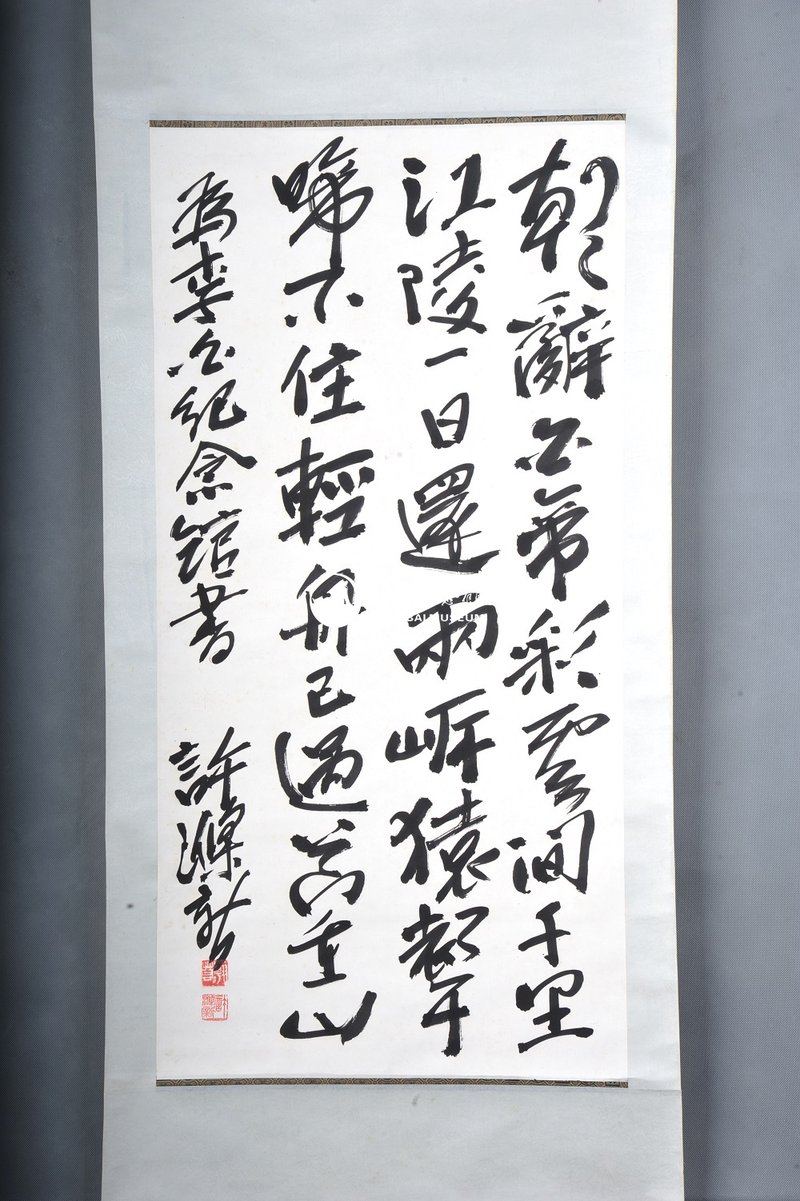 朝辭白帝彩雲間千里
江陵一日還兩岸猿聲
啼不住輕舟已過萬重山
為李白紀念館書 許滌新